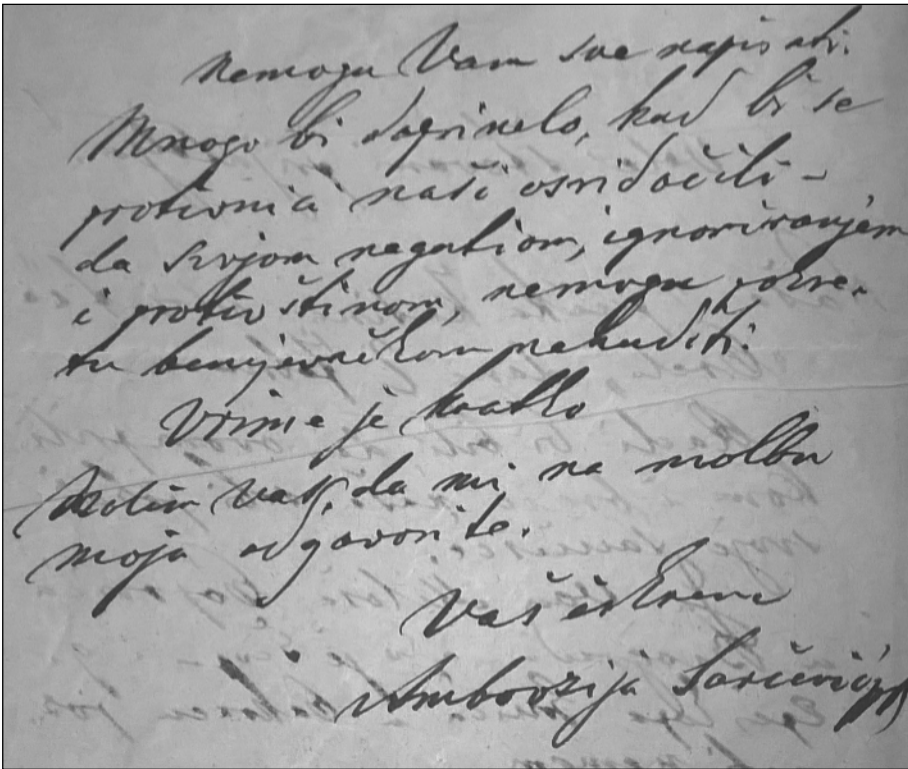 nemogu Vam sve napisati.
Mnogo bi doprinelo, kad bi se
protivnici naši osvidočili –
da svojom negatiom, ignoriranjem
i protivštinom, nemogu pokre-
tu bunjevačkom nahuditi.
Vrime je kratko
Molim vas, da mi na molbu
moju odgovorite.
Vaš iskreni
Ambrozija Šarčević